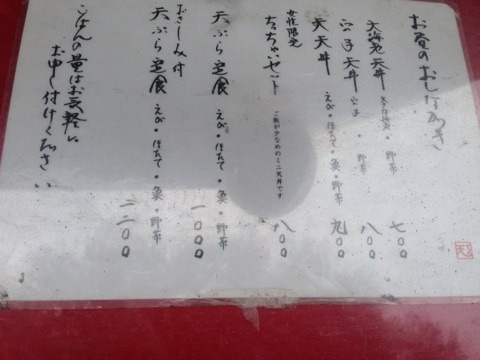 お昼のおしながき
大海老天丼 野菜 七〇〇
穴子天丼 穴子・野菜 八〇〇
天天丼 えび・ほたて・魚・野菜 九〇〇
女性限定
ちっちゃいセット ご飯が少なめのミニ天丼です 八〇〇
天ぷら定食 えび・ほたて・魚・野菜 一〇〇〇
おさしみ付
天ぷら定食 えび・ほたて・魚・野菜 一二〇〇
ごはんの量はお気軽に
お申し付けください